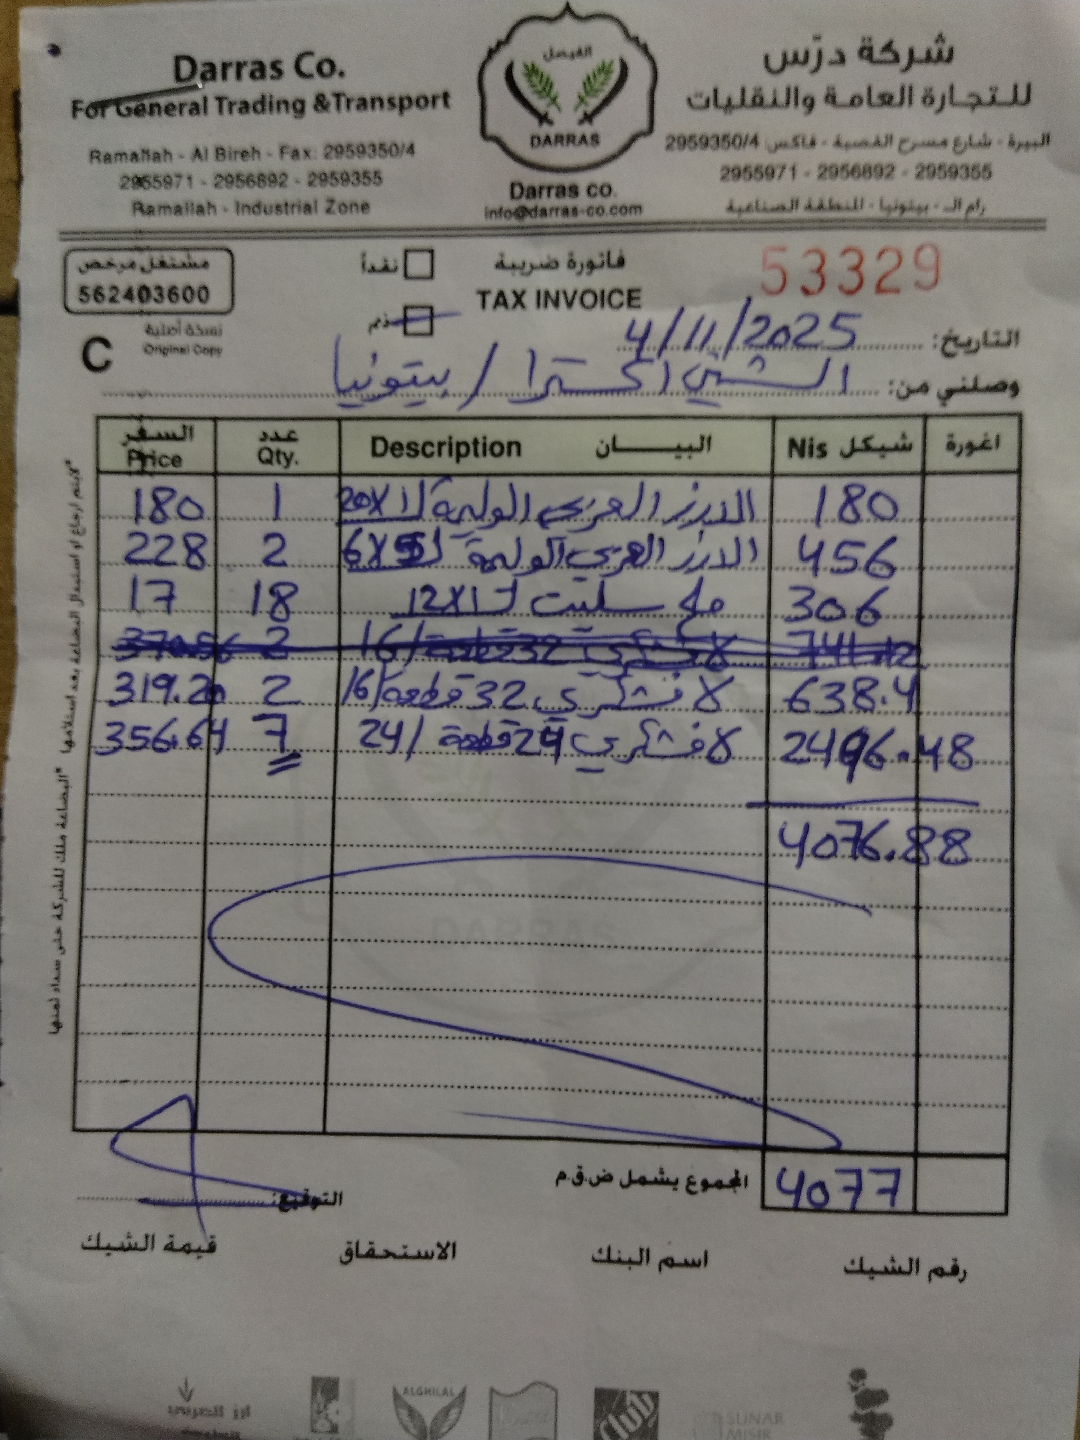 Darras Co.
For General Trading &Transport
Ramallah - Al Bireh - Fax: 2959350/4
2955971 - 2956892 - 2959355
Ramallah - Industrial Zone
الفيصل
DARRAS
Darras co.
info@darras-co.com
شركة درّس
للتجارة العامة والنقليات
البيرة - شارع مسرح القصبة - فاكس: 2959350/4
2955971 - 2956892 - 2959355
رام الله - بيتونيا - المنطقة الصناعية
مشتغل مرخص
562403600
نقداً
فاتورة ضريبة
53329
TAX INVOICE
ذمم
نسخة أصلية
Original Copy
C
التاريخ: 4/11/2025
وصلني من: الشني اكسترا / بيتونيا
السعر عدد البيـــان شيكل اغورة
Price Qty. Description Nis
180 1 الارز العربي الوليمة 20X1ك 180
228 2 الارز العربي الوليمة 6X5ك 456
17 18 ملح سليت 12X1ك 306
370.56 2 لافشكري 32 قطعة/16 741.12
319.20 2 لافشكري 32 قطعة/16 638.4
356.64 7 لافشكري 24 قطعة/24 2496.48
4076.88
المجموع يشمل ض.ق.م 4077
التوقيع:
رقم الشيك اسم البنك الاستحقاق قيمة الشيك
*لايتم ارجاع او استبدال البضاعة بعد استلامها *البضاعة ملك للشركة حتى سداد ثمنها
ALGHILAL
Club
SUNAR
MISIR